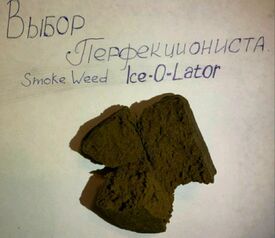 Выбор
Перфекциониста.
Smoke Weed Ice-O-Lator